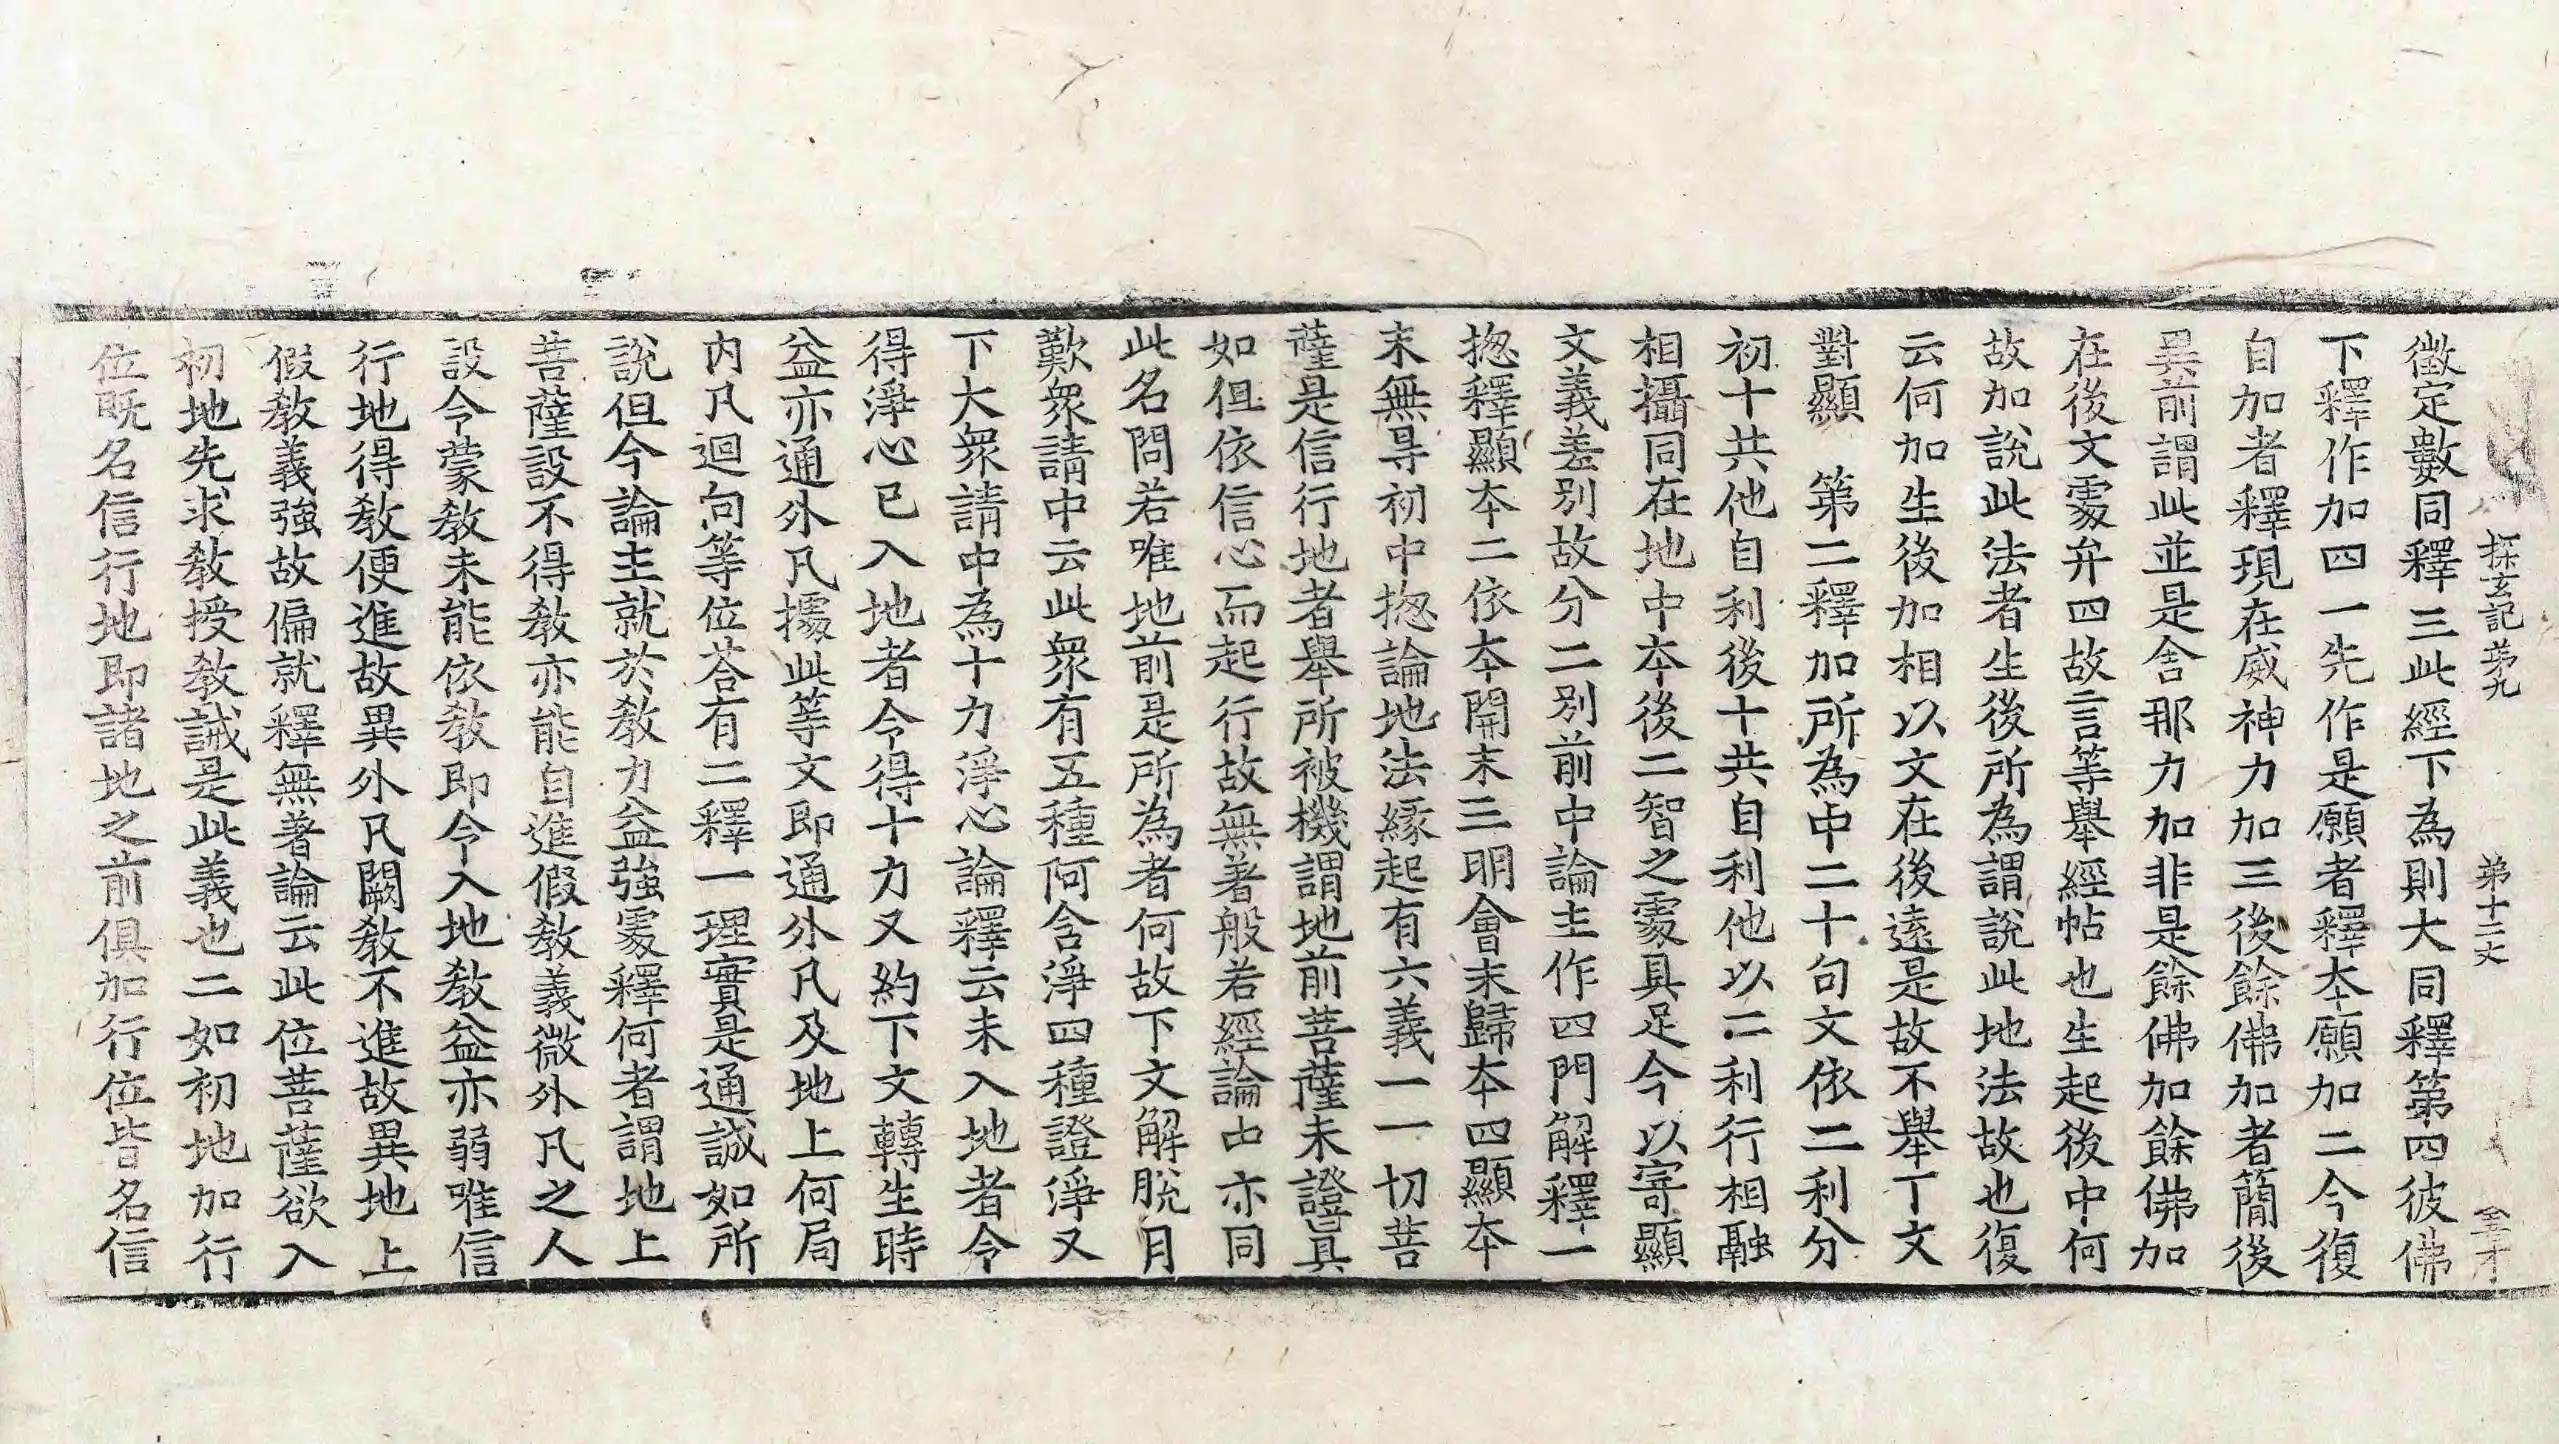 探玄記苐九 苐十二丈 全才
徵定數同釋三此經下為則大同釋第四彼佛
下釋作加四一先作是願者釋夲願加二今復
自加者釋現在威神力加三後餘佛加者簡後
異前謂此並是舍那力加非是餘佛加餘佛加
在後文䖏弁四故言等舉經帖也生起後中何
故加說此法者生後所為謂說此地法故也復
云何加生後加相以文在後遠是故不舉丁文
對顯　第二釋加所為中二十句文依二利分
初十共他自利後十共自利他以二利行相融
相攝同在地中夲後二智之䖏具足今以寄顯
文義差別故分二別前中論主作四門解釋一
揔釋顯夲二依夲開末三明會末歸夲四顯夲
末無㝵初中揔論地法緣起有六義一一切菩
薩是信行地者舉所被機謂地前菩薩未證真
如但依信心而起行故無著般若經論中亦同
此名問若唯地前是所為者何故下文解脫月
歎衆請中云此衆有五種阿含淨四種證淨又
下大衆請中為十力淨心論釋云未入地者令
得淨心已入地者令得十力又約下文轉生時
益亦通外凡攄此等文即通外凡及地上何局
內凡迴句等位荅有二釋一理實是通誠如所
說但今論主就於教力益強䖏釋何者謂地上
菩薩設不得教亦能自進假教義微外凡之人
設令蒙教未能依教即令入地教益亦弱唯信
行地得教便進故異外凡闕教不進故異地上
假教義強故偏就釋無著論云此位菩薩欲入
初地先求教授教誡是此義也二如初地加行
位既名信行地即諸地之前俱加行位皆名信